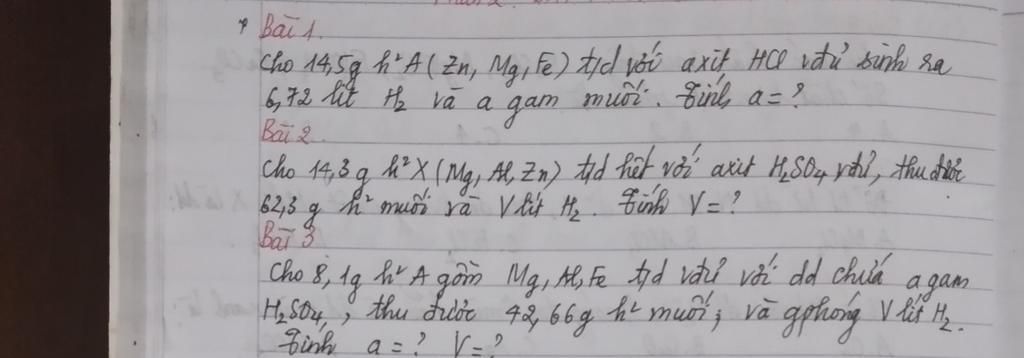 Bài 1.
Cho 14,5g h² A (Zn, Mg, Fe) t/d với axit HCl vđủ sinh ra
6,72 lít H₂ và a gam muối. Tính a = ?
Bài 2
Cho 14,3 g h² X (Mg, Al, Zn) t/d hết với axit H₂SO₄ vđủ, thu được
62,3 g h² muối và V lít H₂. Tính V = ?
Bài 3
Cho 8,1g h² A gồm Mg, Al, Fe t/d vđủ với dd chứa a gam
H₂SO₄, thu được 42,66g h² muối; và gphóng V lít H₂.
Tính a = ? V = ?